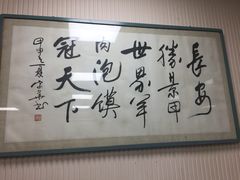 長安
勝景甲
世界羊
肉泡馍
冠天下
甲申